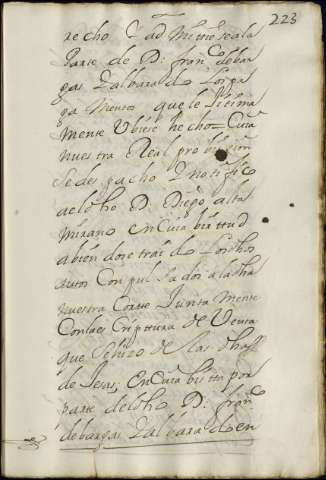 223
recho Y ad Mitiose a la
Parte de D. franco de bar
gas Y albarado Los pa
ga Mentos que le Jitima
Mente Ubiese hecho Cuia
nuestra Real probission
Se des pacho Y notifico
a el dho D. Diego alta
Mirano en Cuia birttud
abiendose traido los dhos
autos Conpulsados a la dha
nuestra Corte Junta Mente
Con la escriptura de Venta
que Se hizo de las dhas
de Jesas, En Cuia bista por
parte del dho D. franco
de bargas Y albarado en